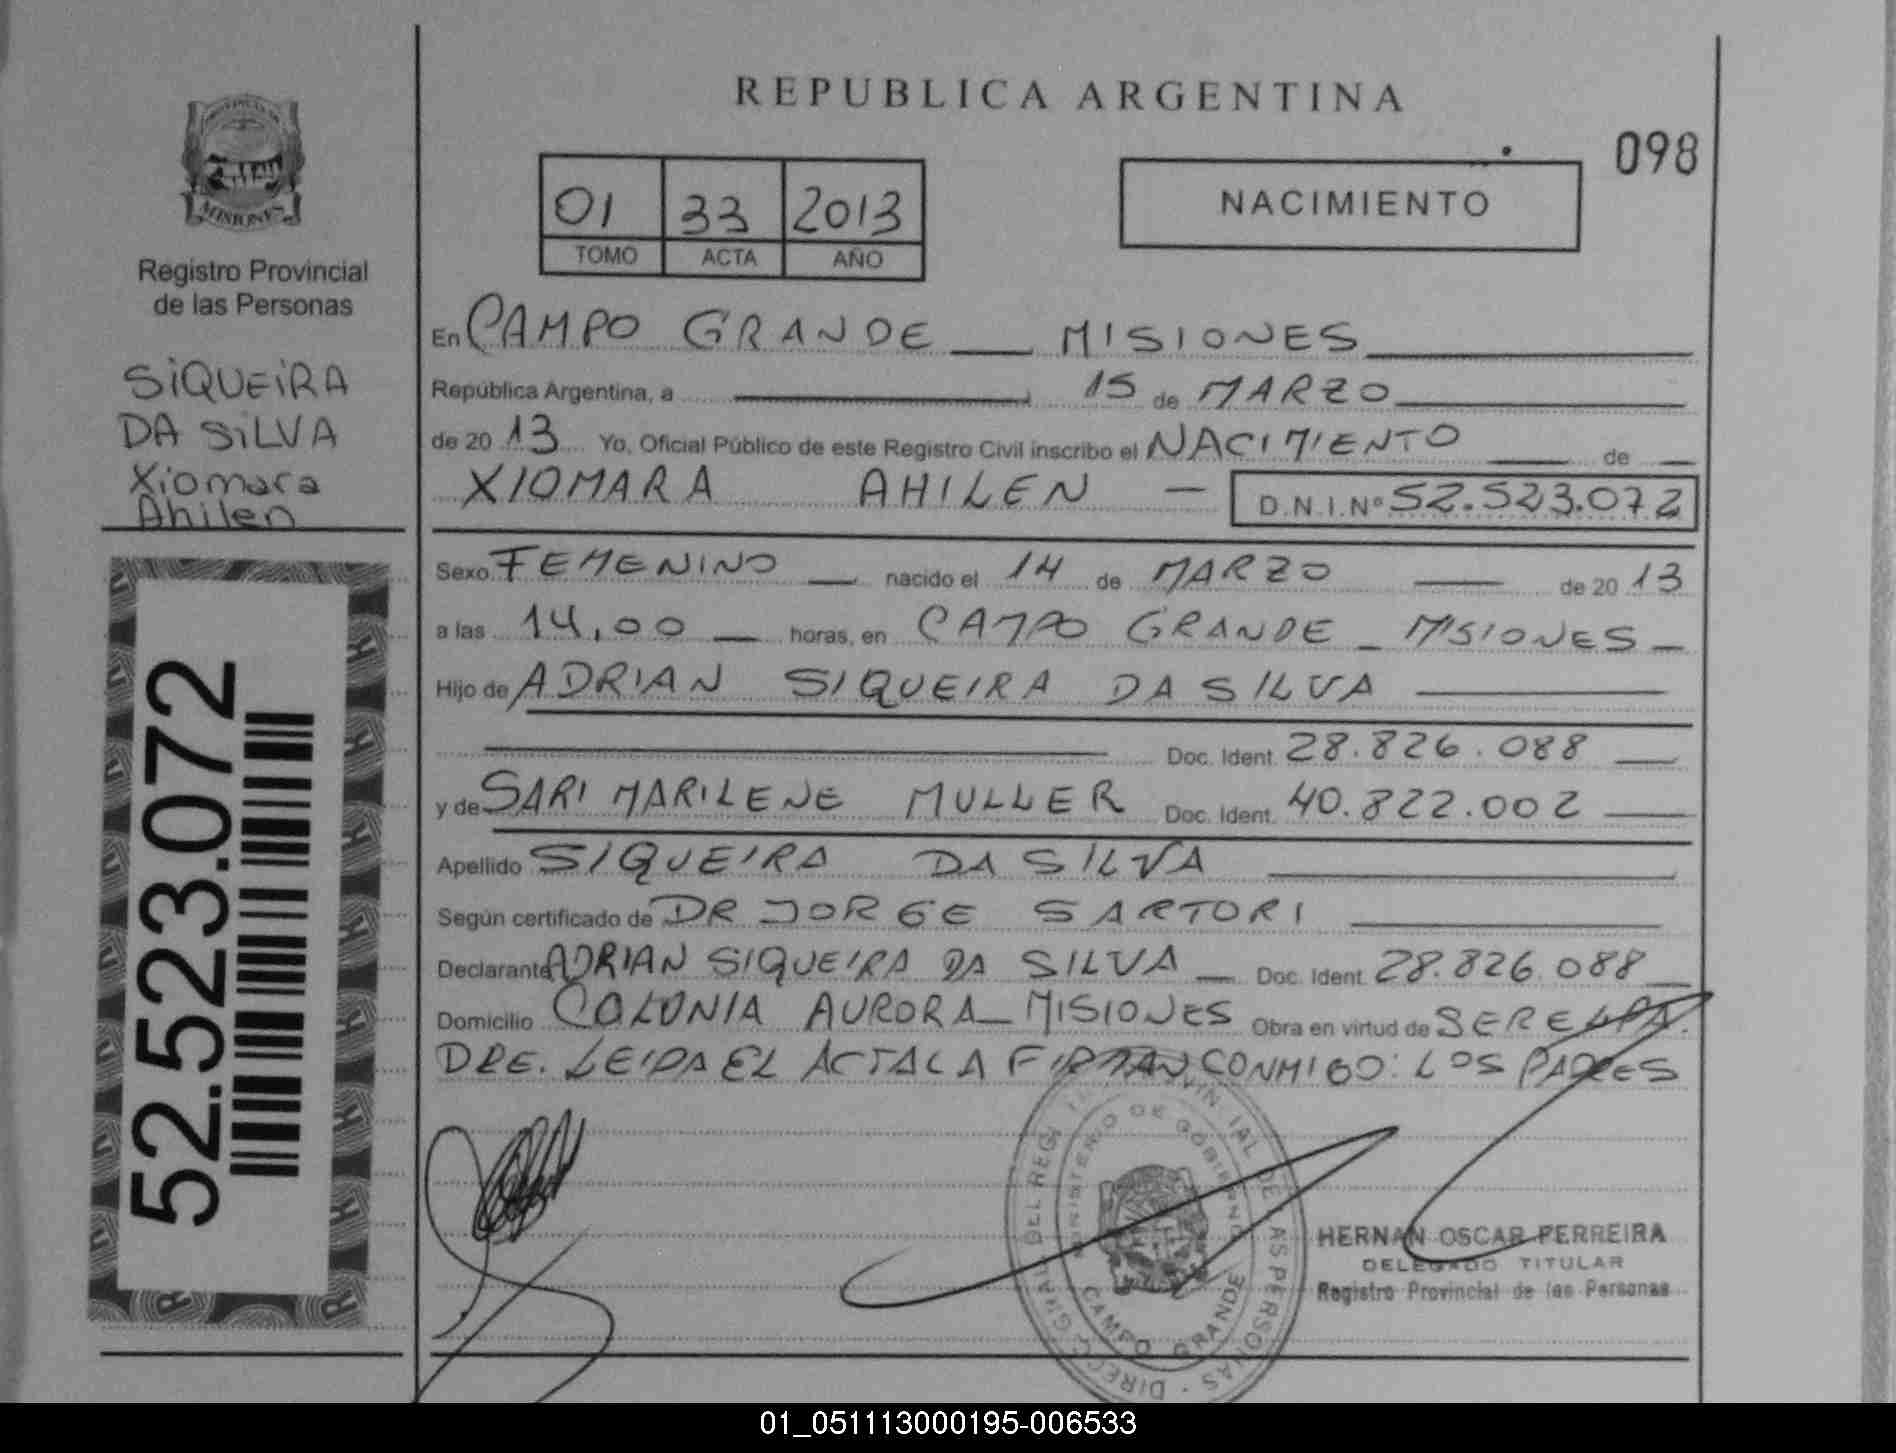 REPUBLICA ARGENTINA
098
MISIONES
Registro Provincial
de las Personas
SIQUEIRA
DA SILVA
Xiomara
Ahilen
52.523.072
01 33 2013
TOMO ACTA AÑO
NACIMIENTO
En CAMPO GRANDE MISIONES
República Argentina, a 15 de MARZO
de 20 13 Yo, Oficial Público de este Registro Civil inscribo el NACIMIENTO de
XIOMARA AHILEN D.N.I.Nº 52.523.072
Sexo FEMENINO nacido el 14 de MARZO de 20 13
a las 14,00 horas, en CAMPO GRANDE MISIONES
Hijo de ADRIAN SIQUEIRA DA SILVA
Doc. Ident. 28.826.088
y de SARI MARILENE MULLER Doc. Ident. 40.822.002
Apellido SIQUEIRA DA SILVA
Según certificado de DR JORGE SARTORI
Declarante ADRIAN SIQUEIRA DA SILVA Doc. Ident. 28.826.088
Domicilio COLONIA AURORA MISIONES Obra en virtud de SER EL PA.
DRE. LEIDA EL ACTA LA FIRMAN CONMIGO: LOS PADRES
MINISTERIO DE GOBIERNO
CAMPO GRANDE
HERNAN OSCAR FERREIRA
DELEGADO TITULAR
Registro Provincial de las Personas
01_051113000195-006533